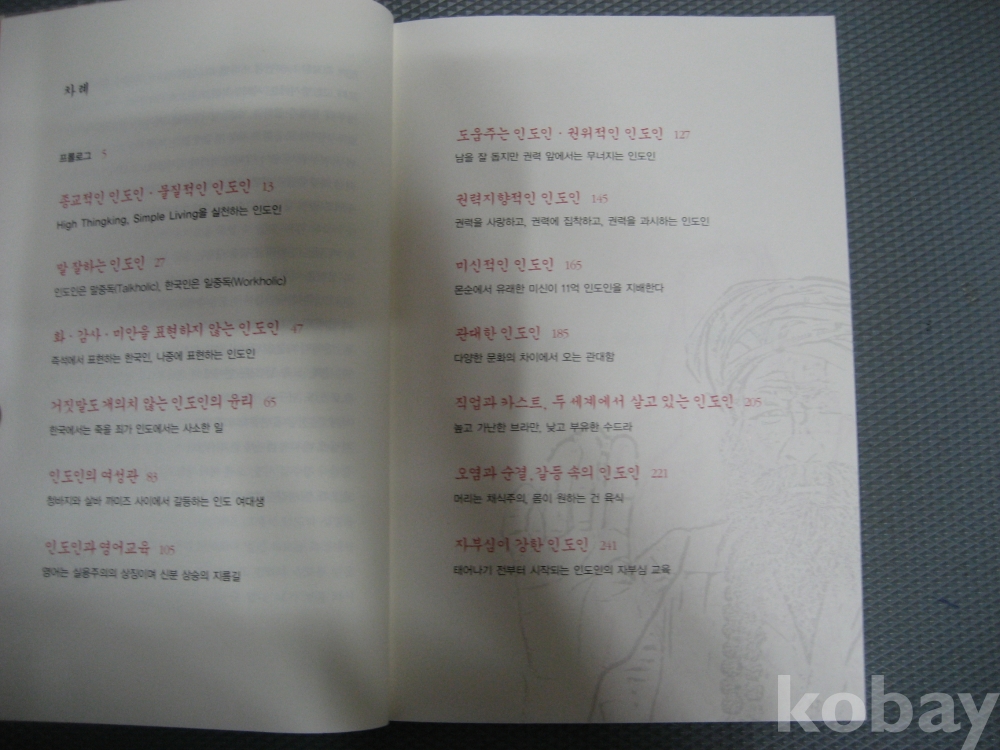 차례
프롤로그 5
종교적인 인도인 · 물질적인 인도인 13
High Thingking, Simple Living을 실천하는 인도인
말 잘하는 인도인 27
인도인은 말중독(Talkholic), 한국인은 일중독(Workholic)
화 · 감사 · 미안을 표현하지 않는 인도인 47
즉석에서 표현하는 한국인, 나중에 표현하는 인도인
거짓말도 개의치 않는 인도인의 윤리 65
한국에서는 죽을 죄가 인도에서는 사소한 일
인도인의 여성관 83
청바지와 살바 까미즈 사이에서 갈등하는 인도 여대생
인도인과 영어교육 105
영어는 실용주의의 상징이며 신분 상승의 지름길
도움주는 인도인 · 권위적인 인도인 127
남을 잘 돕지만 권력 앞에서는 무너지는 인도인
권력지향적인 인도인 145
권력을 사랑하고, 권력에 집착하고, 권력을 과시하는 인도인
미신적인 인도인 165
몬순에서 유래한 미신이 11억 인도인을 지배한다
관대한 인도인 185
다양한 문화의 차이에서 오는 관대함
직업과 카스트, 두 세계에서 살고 있는 인도인 205
높고 가난한 브라만, 낮고 부유한 수드라
오염과 순결, 갈등 속의 인도인 221
머리는 채식주의, 몸이 원하는 건 육식
자부심이 강한 인도인 241
태어나기 전부터 시작되는 인도인의 자부심 교육
kobay